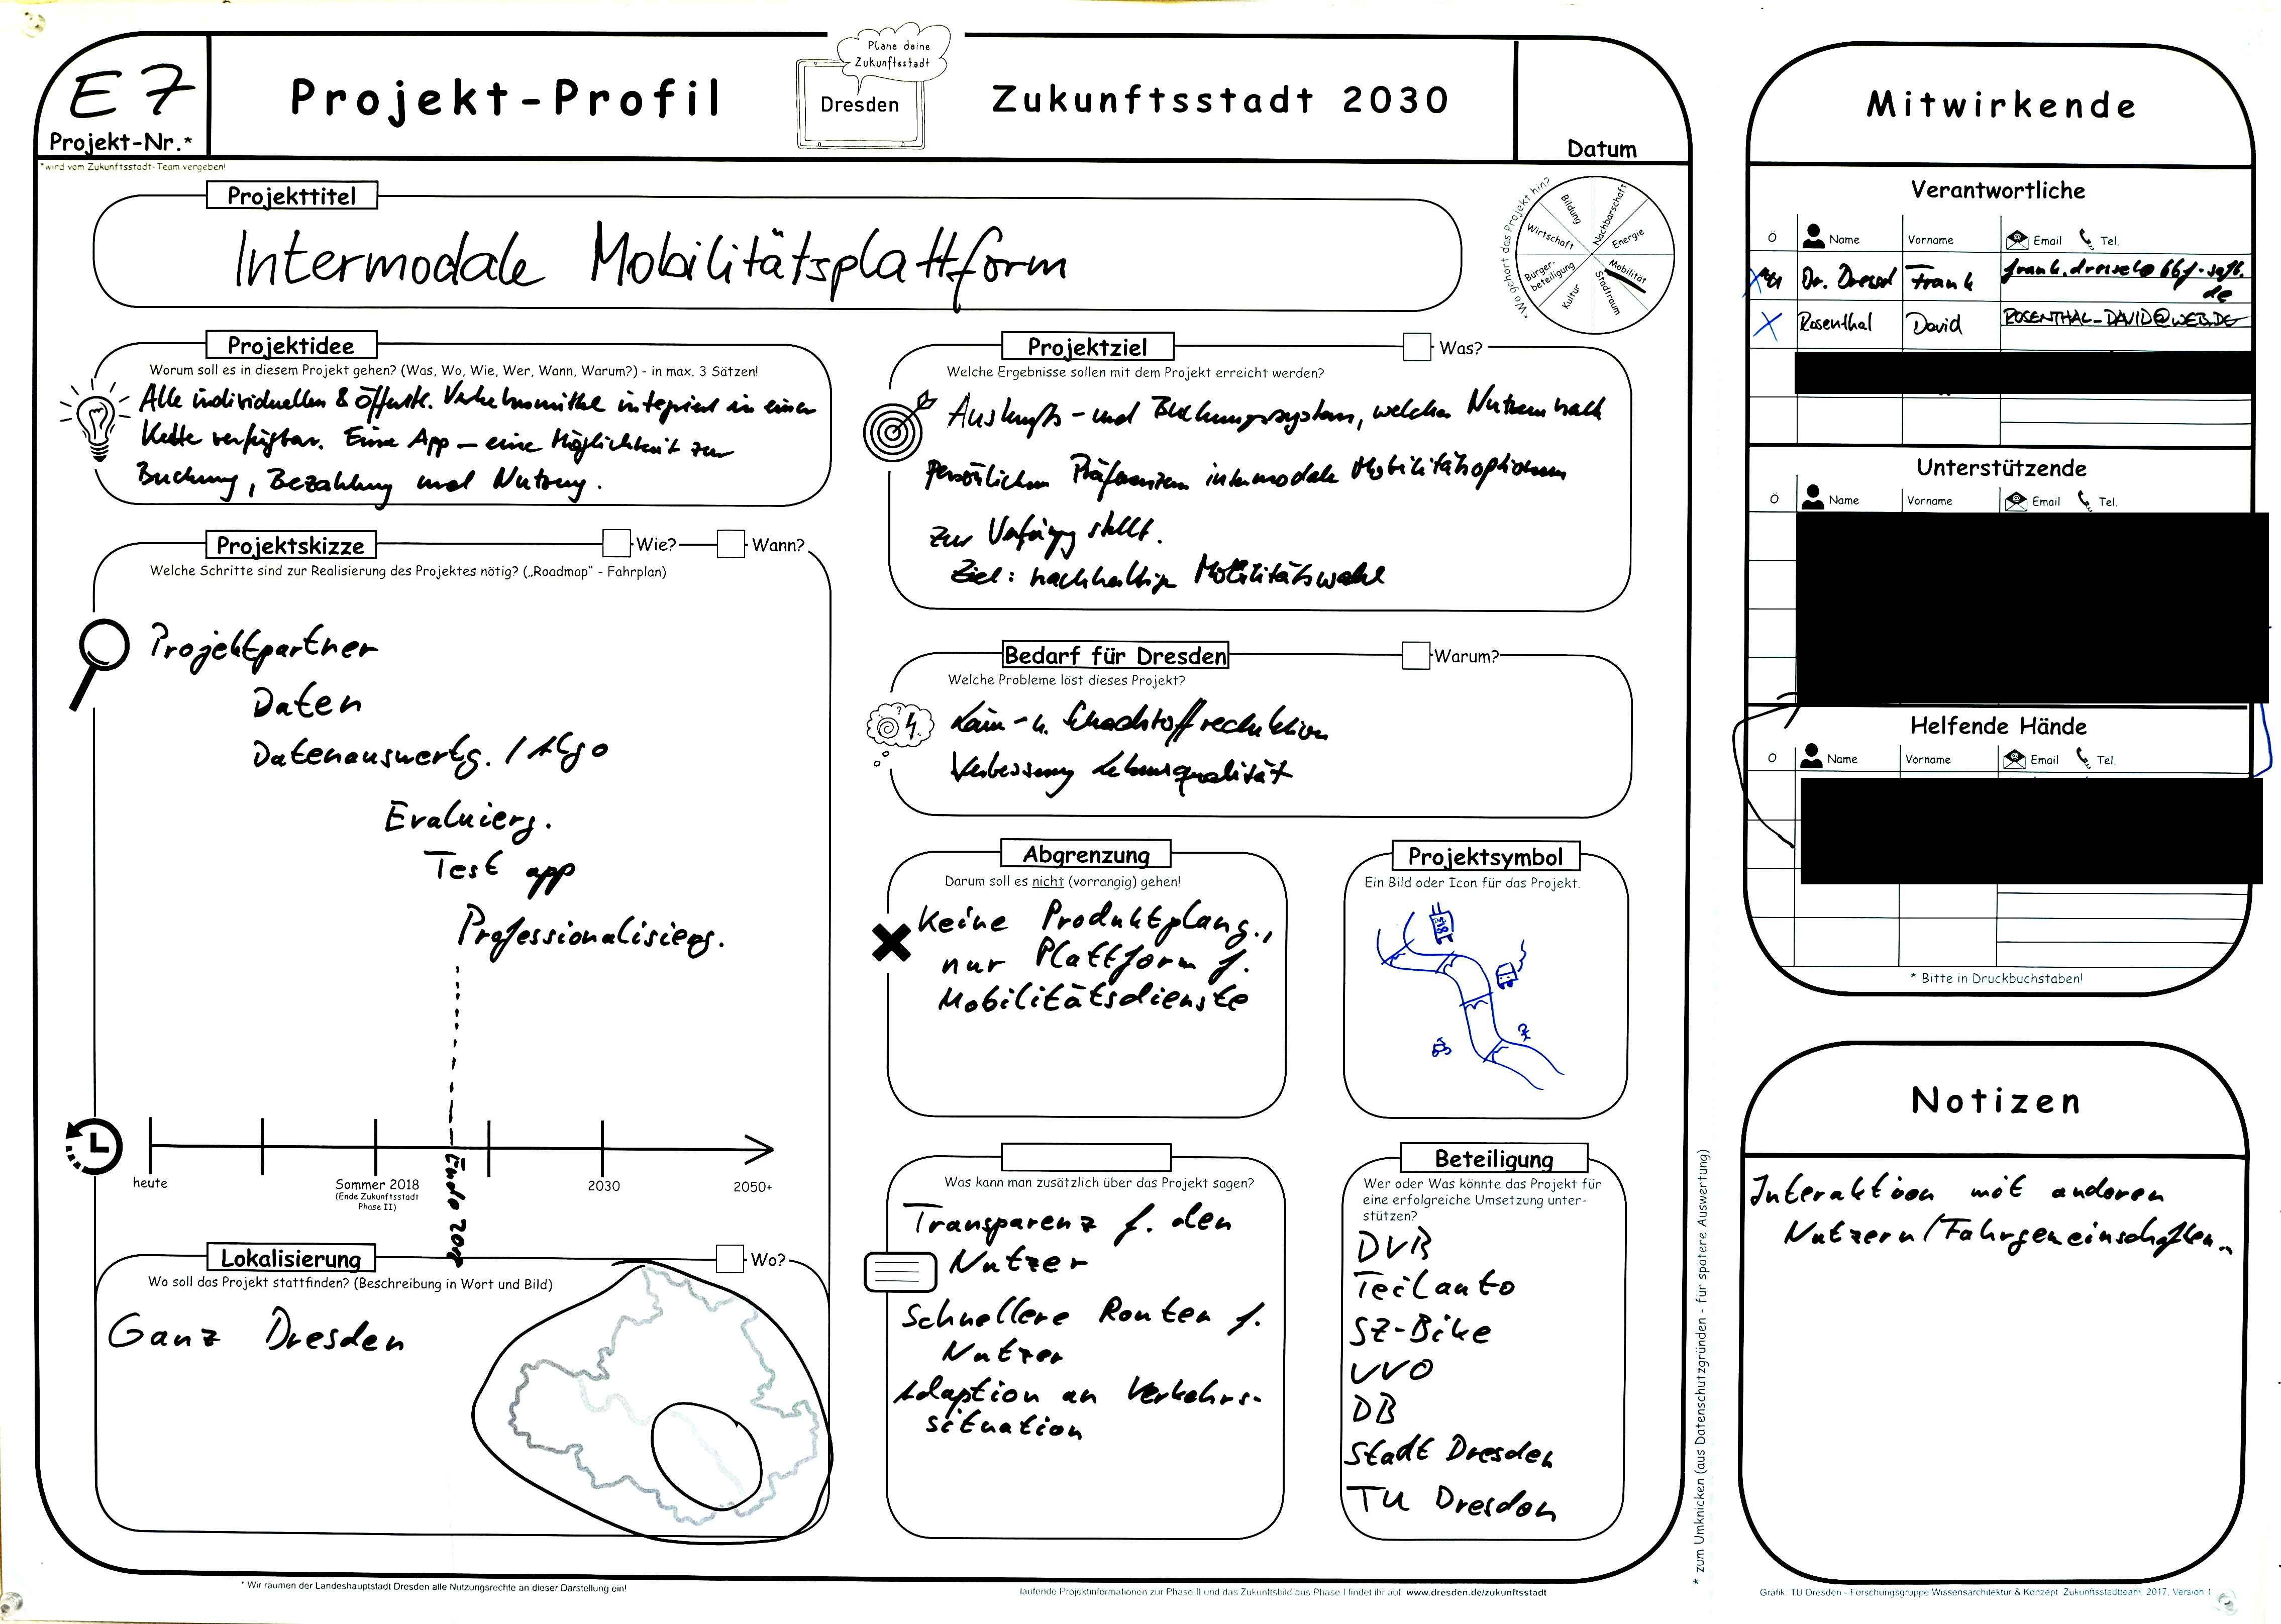 E7
Projekt-Nr.*
*wird vom Zukunftsstadt-Team vergeben!
Projekt-Profil
Plane deine
Zukunftsstadt
Dresden
Zukunftsstadt 2030
Datum
Projekttitel
Intermodale Mobilitätsplattform
*Wo gehört das Projekt hin?
Bildung
Nachbarschaft
Wirtschaft
Energie
Bürger-
beteiligung
Mobilität
Kultur
Stadtraum
Projektidee
Worum soll es in diesem Projekt gehen? (Was, Wo, Wie, Wer, Wann, Warum?) - in max. 3 Sätzen!
Alle individuellen & öffentl. Verkehrsmittel integriert in einer
Kette verfügbar. Eine App – eine Möglichkeit zur
Buchung, Bezahlung und Nutzung.
Projektskizze
Wie?
Wann?
Welche Schritte sind zur Realisierung des Projektes nötig? („Roadmap“ - Fahrplan)
Projektpartner
Daten
Datenauswertg. / Algo
Evaluierg.
Test app
Professionalisierg.
heute
Sommer 2018
(Ende Zukunftsstadt
Phase II)
Ende
2030
2050+
Lokalisierung
Wo?
Wo soll das Projekt stattfinden? (Beschreibung in Wort und Bild)
Ganz Dresden
Projektziel
Was?
Welche Ergebnisse sollen mit dem Projekt erreicht werden?
Auskunfts- und Buchungssystem, welches Nutzern nach
persönlichen Präferenzen intermodale Mobilitätsoptionen
zur Verfügung stellt.
Ziel: nachhaltige Mobilitätswahl
Bedarf für Dresden
Warum?
Welche Probleme löst dieses Projekt?
Lärm- u. Schadstoffreduktion
Verbesserung Lebensqualität
Abgrenzung
Darum soll es nicht (vorrangig) gehen!
Keine Produktplang.,
nur Plattform f.
Mobilitätsdienste
Projektsymbol
Ein Bild oder Icon für das Projekt.
Was kann man zusätzlich über das Projekt sagen?
Transparenz f. den
Nutzer
Schnellere Routen f.
Nutzer
Adaption an Verkehrs-
situation
Beteiligung
Wer oder Was könnte das Projekt für
eine erfolgreiche Umsetzung unter-
stützen?
DVB
Teilauto
SZ-Bike
VVO
DB
Stadt Dresden
TU Dresden
* Wir räumen der Landeshauptstadt Dresden alle Nutzungsrechte an dieser Darstellung ein!
laufende Projektinformationen zur Phase II und das Zukunftsbild aus Phase I findet ihr auf: www.dresden.de/zukunftsstadt
* zum Umknicken (aus Datenschutzgründen - für spätere Auswertung)
Mitwirkende
Verantwortliche
Ö Name Vorname Email Tel.
Dr. Dressel Frank frank.dressel@bbf-soft.
de
X Rosenthal David ROSENTHAL_DAVID@WEB.DE
Unterstützende
Ö Name Vorname Email Tel.
Helfende Hände
Ö Name Vorname Email Tel.
* Bitte in Druckbuchstaben!
Notizen
Interaktion mit anderen
Nutzern/Fahrgemeinschaften
Grafik: TU Dresden - Forschungsgruppe Wissensarchitektur & Konzept: Zukunftsstadtteam, 2017, Version 1